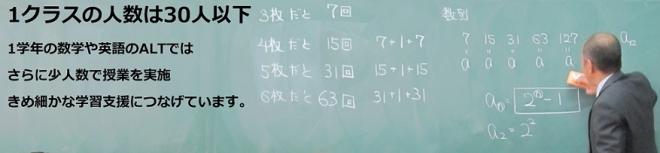 1クラスの人数は30人以下
1学年の数学や英語のALTでは
さらに少人数で授業を実施
きめ細かな学習支援につなげています。
3枚だと 7回
4枚だと 15回 7+1+7
5枚だと 31回 15+1+15
6枚だと 63回 31+1+31
数列
7 15 31 63 127
= = = = =
a a a a a
a₁₂
= 2 - 1
a₂ = 2²